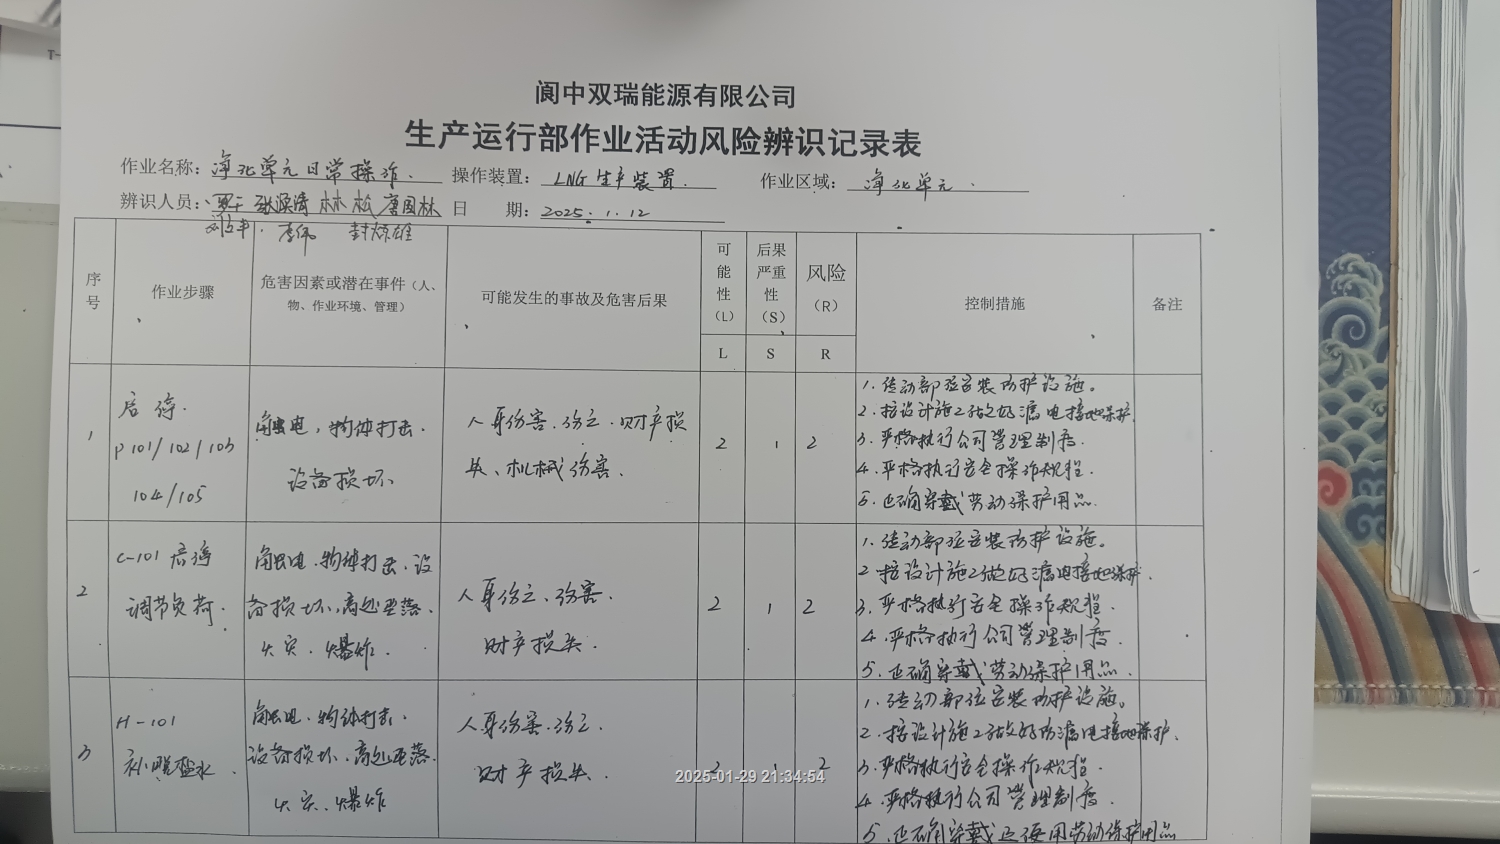 T-
阆中双瑞能源有限公司
生产运行部作业活动风险辨识记录表
作业名称：净化单元日常操作. 操作装置：LNG生产装置. 作业区域：净化单元.
辨识人员： 林松 唐国林 日 期：2025.1.12
李伟
序号 作业步骤 危害因素或潜在事件（人、物、作业环境、管理） 可能发生的事故及危害后果 可能性（L） 后果严重性（S） 风险（R） 控制措施 备注
L S R
1
启停.
P101/102/103
104/105
触电，物体打击.
设备损坏
人身伤害.伤亡.财产损
失、机械伤害、
2 1 2
1.传动部位安装防护设施。
2.按设计施工做好漏电接地保护.
3.严格执行公司管理制度.
4.严格执行安全操作规程.
5.正确穿戴劳动保护用品.
2
C-101启停
调节负荷.
触电.物体打击.设
备损坏、高处坠落.
火灾、爆炸.
人身伤亡、伤害.
财产损失.
2 1 2
1.传动部位安装防护设施。
2 按设计施工做好漏电接地保护.
3.严格执行安全操作规程.
4.严格执行公司管理制度.
5.正确穿戴劳动保护用品.
3
H-101
补脱盐水.
触电、物体打击.
设备损坏、高处坠落.
火灾、爆炸
人身伤害.伤亡.
财产损失.
2 1 2
1.传动部位安装防护设施。
2.按设计施工做好防漏电接地保护.
3.严格执行安全操作规程.
4.严格执行公司管理制度.
5.正确穿戴正使用劳动保护用品
2025-01-29 21:34:54